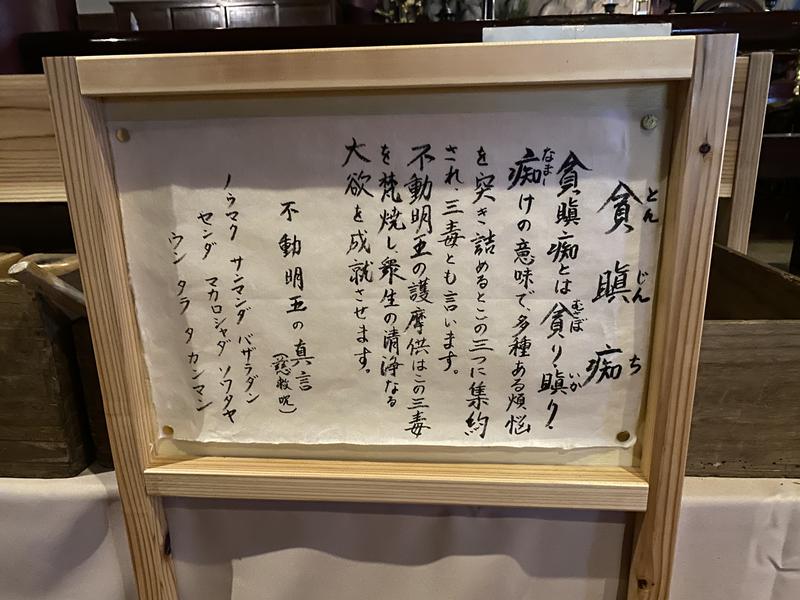 貪瞋痴
とんじんち
貪瞋痴とは貪り・瞋り・
むさぼ
いか
痴けの意味で、多種ある煩悩
なま
を突き詰めるとこの三つに集約
され、三毒とも言います。
不動明王の護摩供はこの三毒
を梵焼し衆生の清浄なる
大欲を成就させます。
不動明王の真言
(慈救呪)
ノウマク サンマンダ バザラダン
センダ マカロシャダ ソワタヤ
ウン タラ タ カンマン